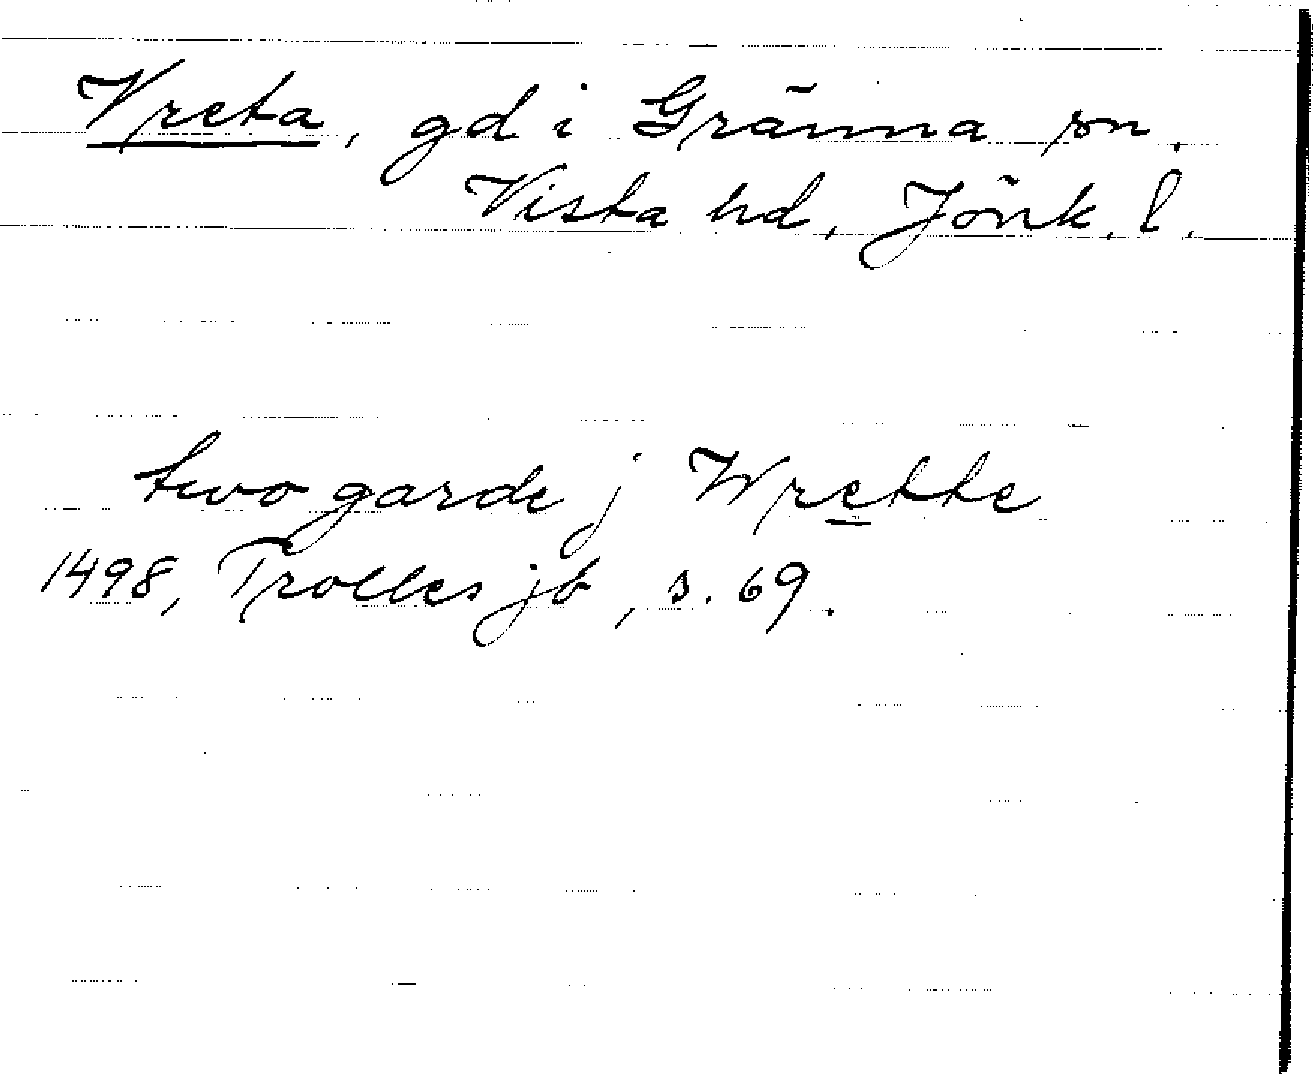 Vreta, gd i Gränna sn,
Vista hd, Jönk. l.
two garde j Wrette
1498, Trolles jb, s. 69.